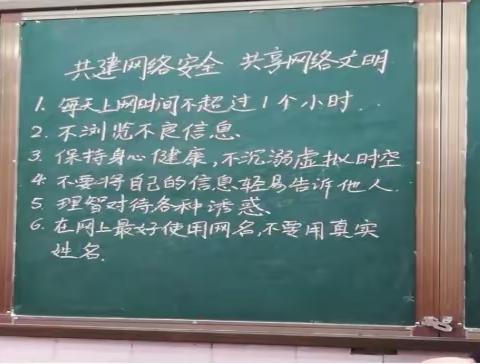 共建网络安全 共享网络文明
1. 每天上网时间不超过1个小时..
2. 不浏览不良信息.
3. 保持身心健康,不沉溺虚拟时空
4. 不要将自己的信息轻易告诉他人.
5. 理智对待各种诱惑.
6. 在网上最好使用网名,不要用真实
姓名.